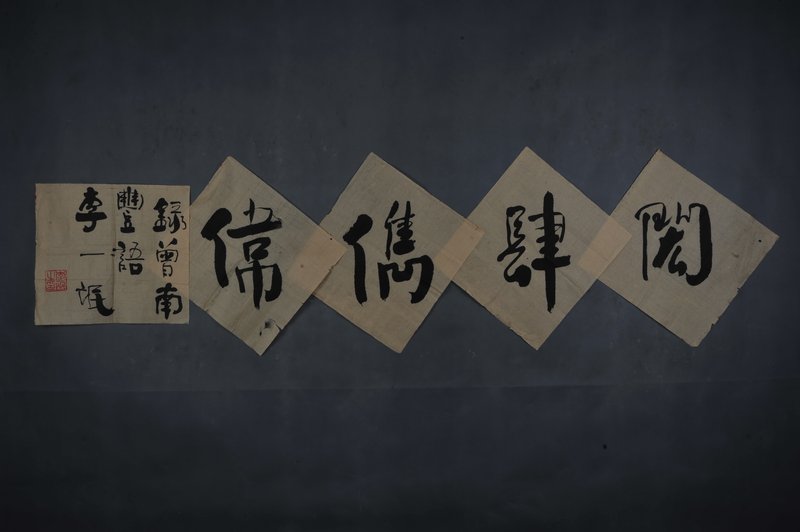 閎肆儁偉
録曾南
豐語
李一氓